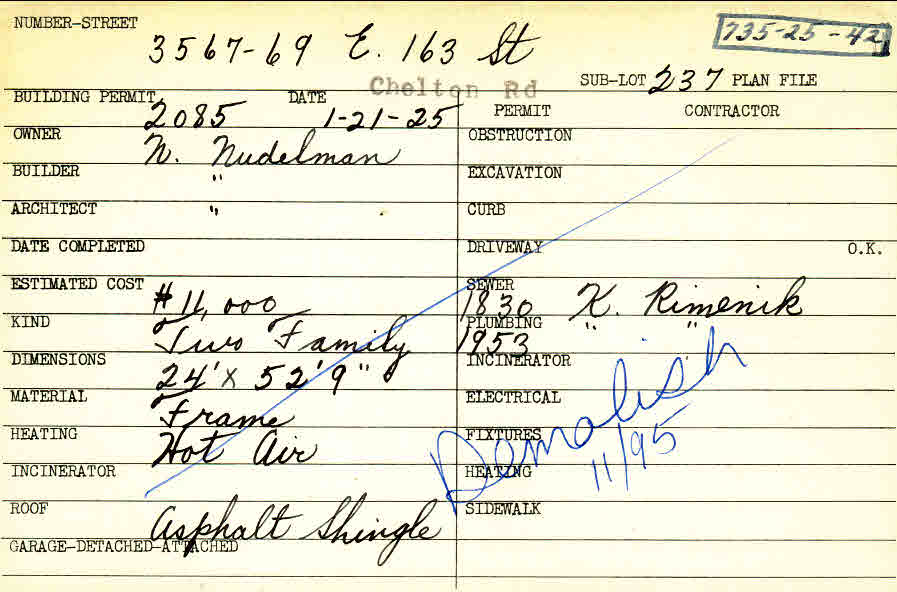 NUMBER-STREET 3567-69 E. 163 St 735-25-42
Chelton Rd SUB-LOT 237 PLAN FILE
BUILDING PERMIT 2085 DATE 1-21-25 PERMIT CONTRACTOR
OWNER N. Nudelman OBSTRUCTION
BUILDER " EXCAVATION
ARCHITECT " CURB
DATE COMPLETED DRIVEWAY O.K.
ESTIMATED COST #11,000 SEWER 1830 K. Rimenik
KIND Two Family PLUMBING 1953 " "
DIMENSIONS 24' X 52'9" INCINERATOR
MATERIAL Frame ELECTRICAL
HEATING Hot Air FIXTURES
Demolish
11/95
INCINERATOR HEATING
ROOF Asphalt Shingle SIDEWALK
GARAGE-DETACHED-ATTACHED